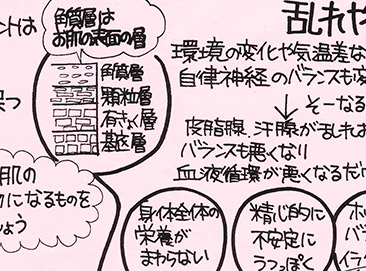 乱れや
ントは
角質層は
お肌の表面の層
角質層
顆粒層
有きょく層
基底層
環境の変化や気温差な
自律神経のバランスも変
↓そーなる
皮脂腺、汗腺が乱れお
バランスも悪くなり
血液循環が悪くなるだけ
保つ
肌の
になるものを
しょう
身体全体の
栄養が
まわらない
精心的に
不安定に
うつっぽく
ホ
バ
イラ